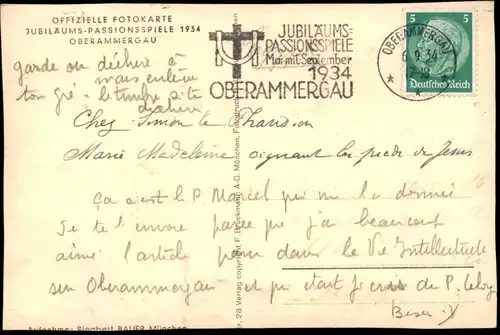 OFFIZIELLE FOTOKARTE
JUBILÄUMS-PASSIONSSPIELE 1934
OBERAMMERGAU
JUBILÄUMS-
PASSIONSSPIELE
Mai mit September
1934
OBERAMMERGAU
OBERAMMERGAU
6.9.34
5 5
Deutsches Reich
garde ou déchire à
mais enlève
ton gré - le timbre
Chez Simon le Pharisien
Marie Madeleine oignant les pieds de Jesus
Ça c'est le P. Marcel qui me l'a donnée
Je te l'envoie parce que j'ai beaucoup
aimé l'article paru dans la Vie Intellectuelle
sur Oberammergau et qui était je crois de P.
Nr. 28 Verlag copyright F. Bruckmann A.-G. München,
Aufnahme: Siegbert BAUER München